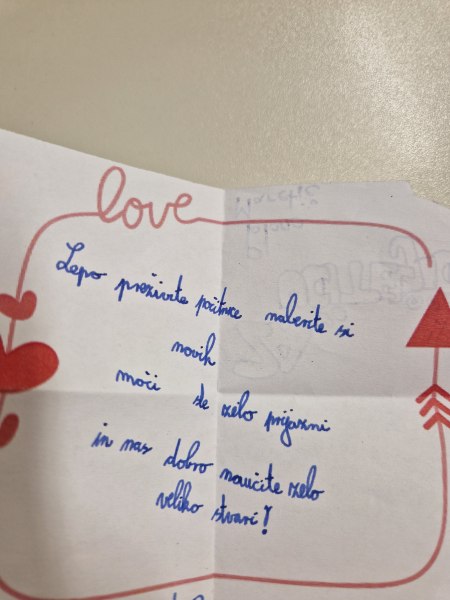 love
Lepo preživite počitnice naberite si
novih
moči ste zelo prijazni
in nas dobro naučite zelo
veliko stvari!